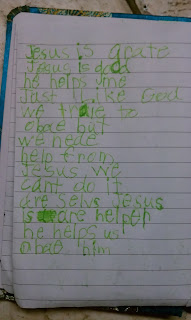 Jesus is grate
Jesus is good
he helps me
Just like God
we traie to
obae but
we nede
help from
Jesus, we
cant do it
are selvs Jesus
is are helper
he helps us
obae him